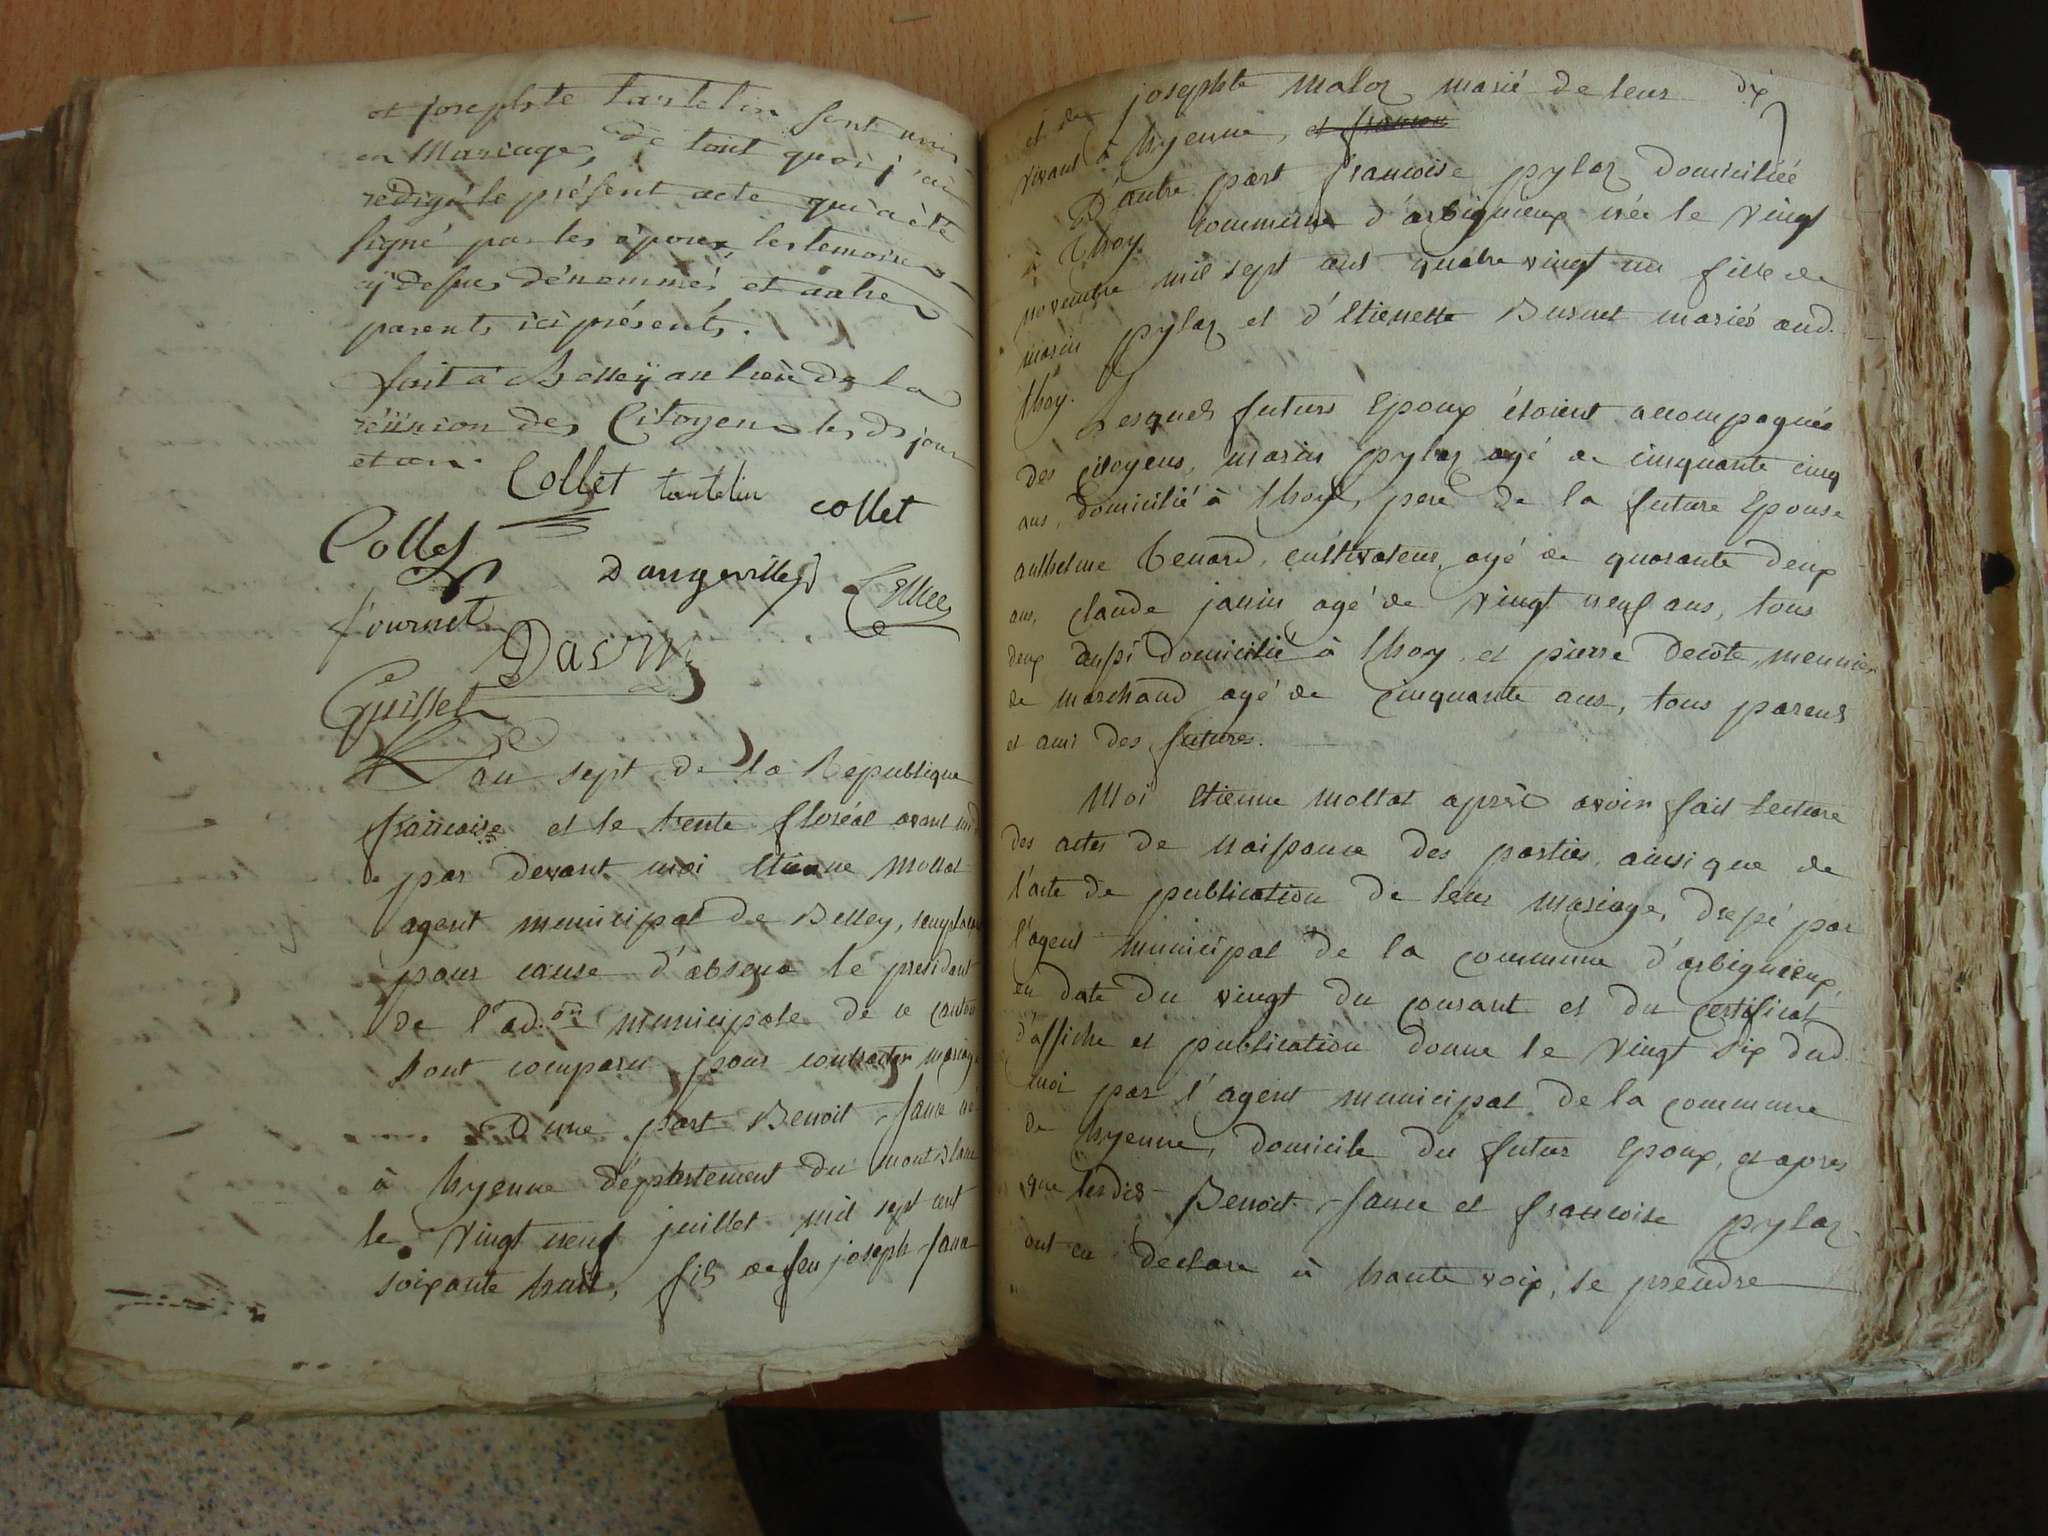 et josephte tartelin sont unis
en Mariage, de tout quoi j'ai
redigé le présent acte qui a été
signé par les époux, les temoins
cÿ desus dénommés et autres
parents ici présents.
fait a Belleÿ au lieu de la
réünion des Citoyens les ds jour
et an.
Collet tartelin collet
Collet
Dangeville
fournet
Guillet
L'an sept de la Republique
francoise et le trente floréal avant
par devant moi Etienne Mollat
agent municipal de Belley, remplacant
pour cause d'absence le president
de l'ad.on municipale de ce canton
sont comparu pour contracter mariage
D'une part Benoit né
à hyenne département du mont Blanc
le vingt neuf juillet mil sept cent
soixante huit, fils de feu joseph
dix
et de josephte maloz marié de leur
vivant à hyenne, et francoi
D'autre part francoise pylaz domiciliée
à thoy commune d'arbignieux née le vingt
novembre mil sept cent quatre vingt un fille de
marin pylaz et d'Etienette Burnet mariés aud.
thoy.
Lesquels futurs Epoux étoient accompagnés
des citoyens, marin pylaz agé de cinquante cinq
ans, domicilié à thoy, pere de la future Epouse
anthelme Tenard, cultivateur, agé de quarante deux
ans, claude janin agé de vingt neuf ans, tous
deux aussi domicilié à thoy, et pierre decote, meunier
de marchand agé de cinquante ans, tous parens
et ami des futures.
Moi Etienne mollat après avoir fait lecture
des actes de naissance des parties, ainsi que de
l'acte de publication de leur mariage, dressé par
l'agent municipal de la commune d'arbignieux,
en date du vingt du courant et du certificat
d'affiche et publication donne le vingt six dud.
moi par l'agent municipal de la commune
de hyenne, domicile du futur Epoux, et apres
que lesdis Benoit et francoise pylaz
ont eu declare à haute voix, se prendre